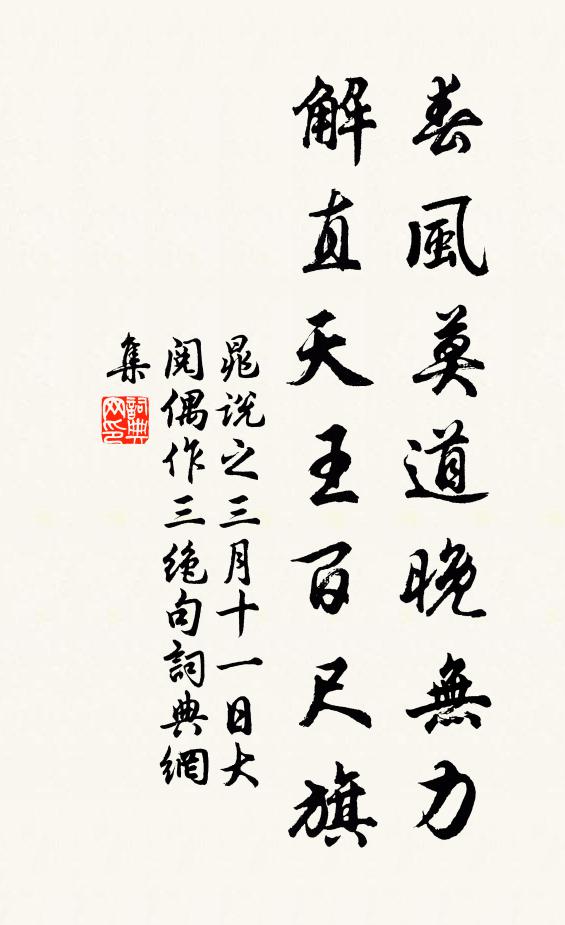 春風莫道晚無力
解直天王百尺旗
晁說之三月十一日大
閱偶作三絕句詞典網
集
詞典網印